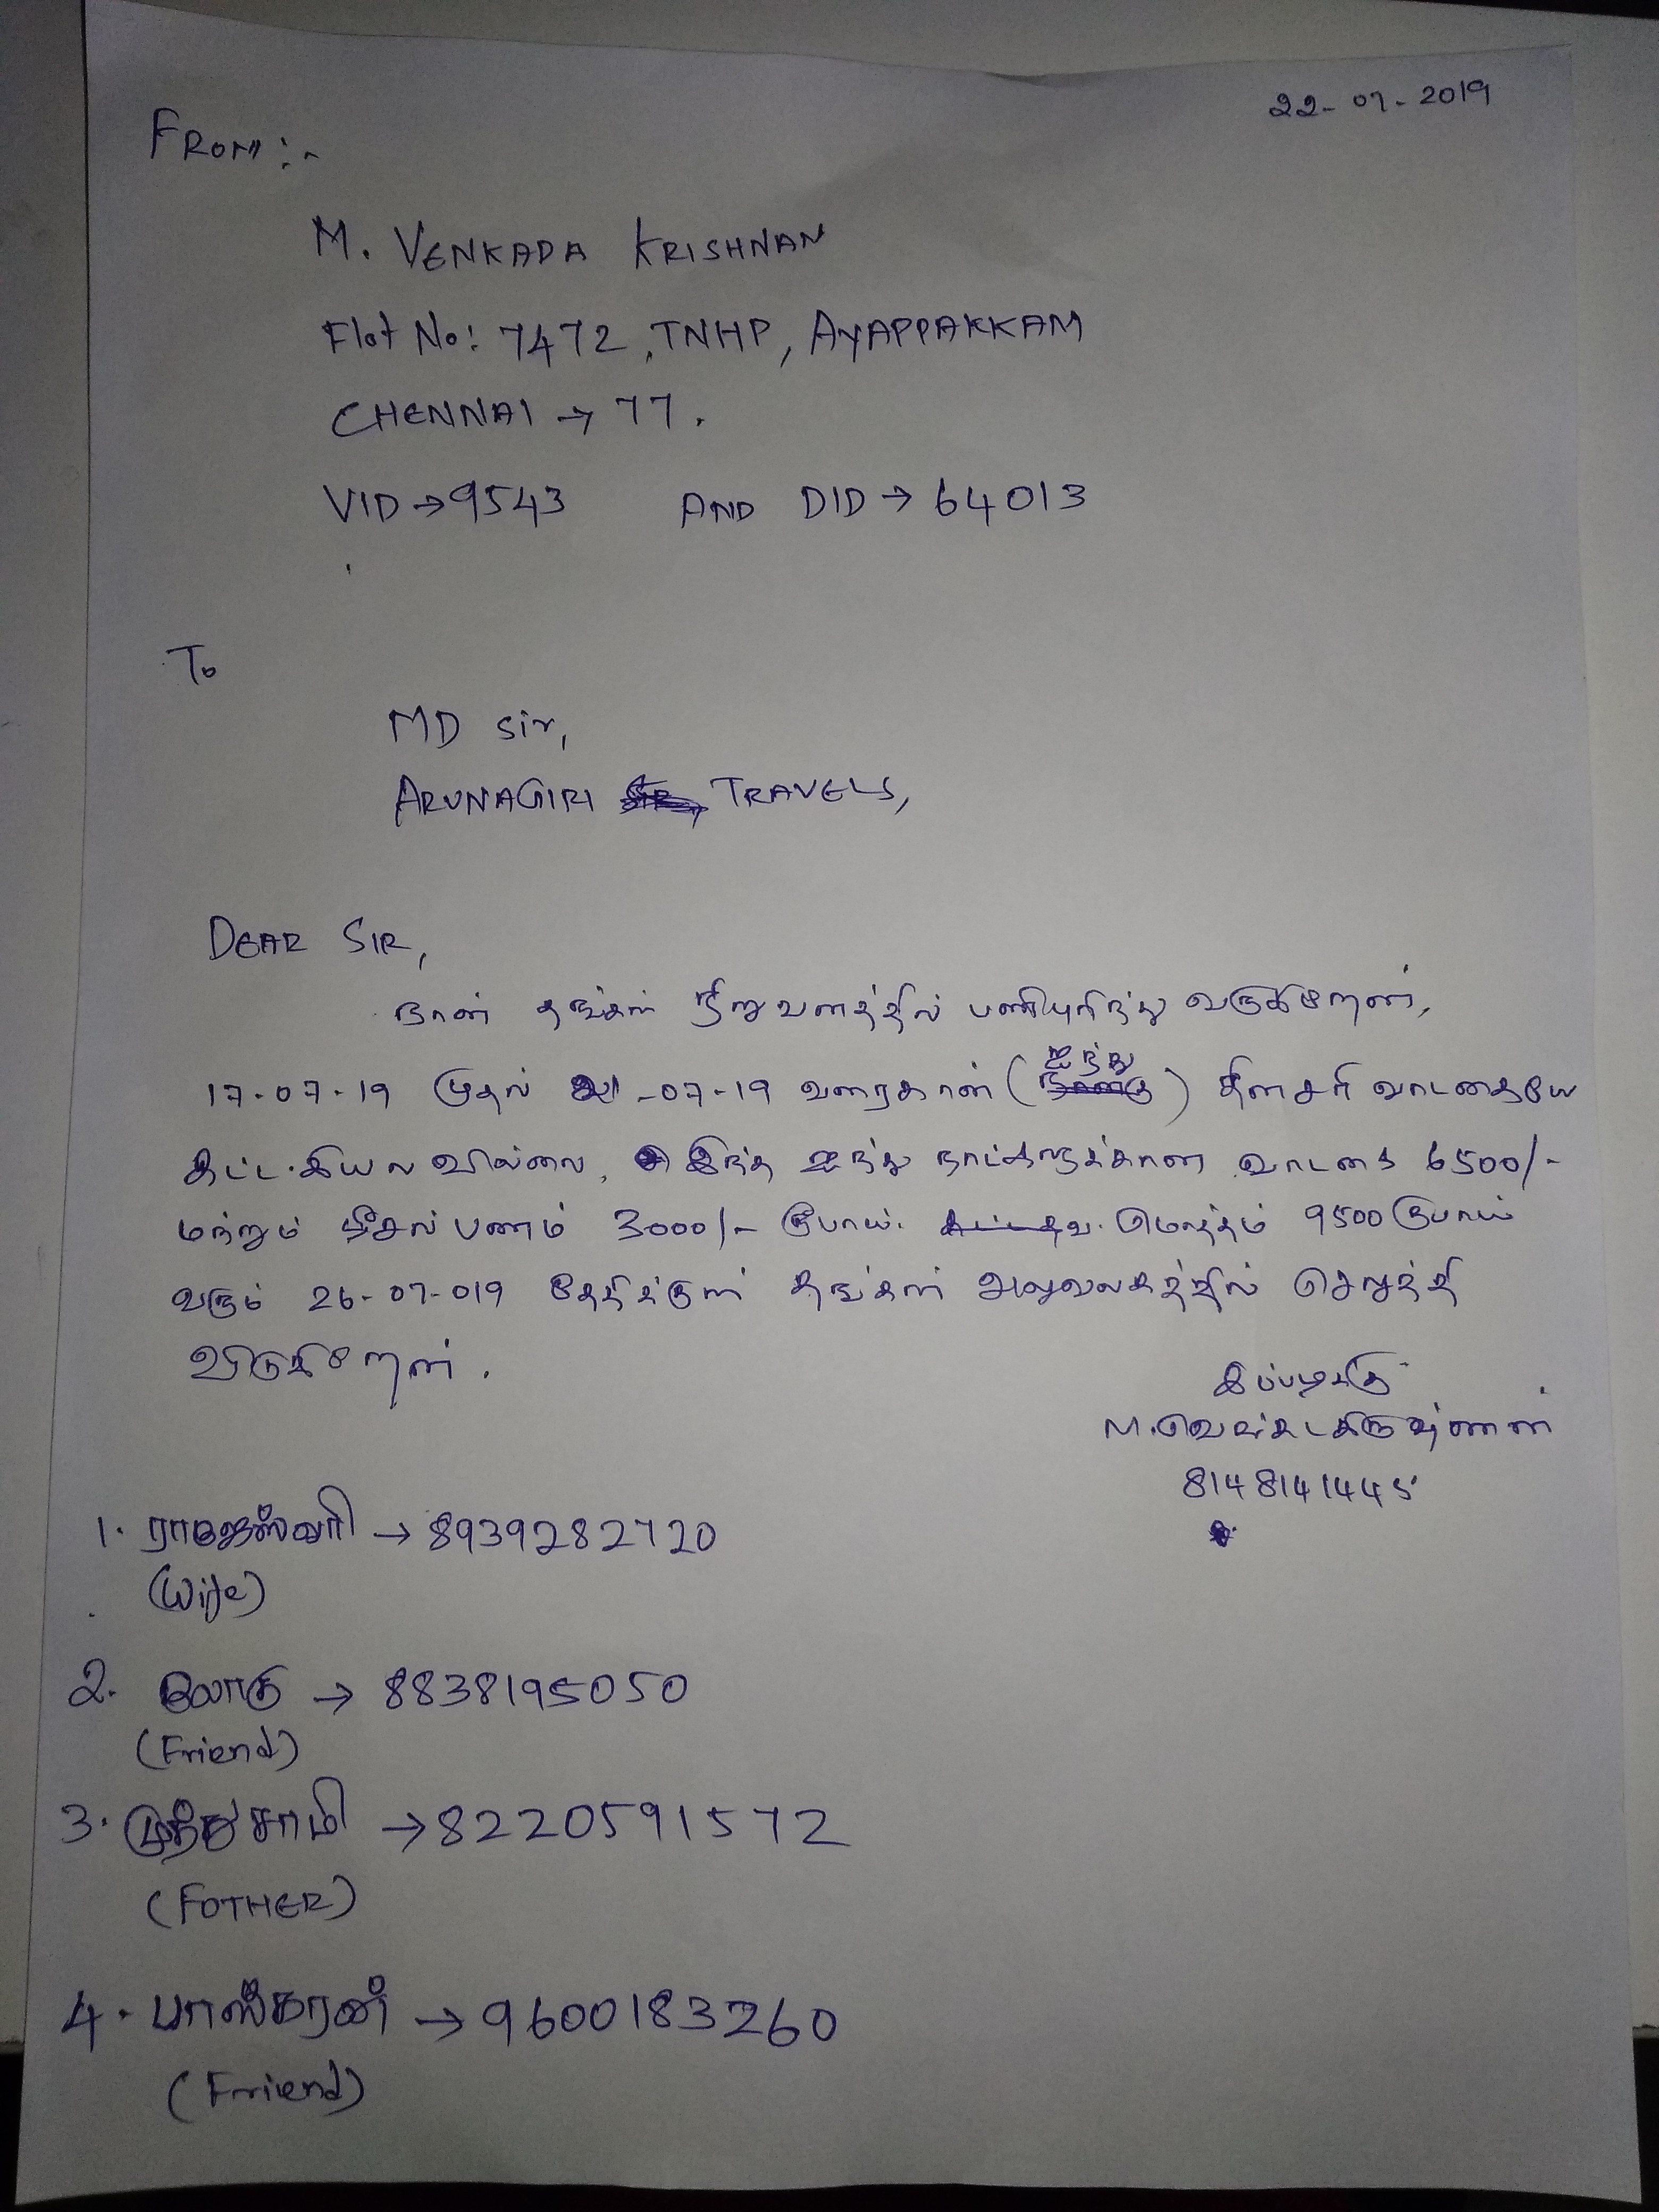 22-07-2019
FROM :-
M. VENKADA KRISHNAN
Flot No: 7472, TNHP, AYAPPAKKAM
CHENNAI → 77.
VID → 9543 AND DID → 64013
To
MD Sir,
ARUNAGIRI TRAVELS,
DEAR SIR,
நான் தங்கள் நிறுவனத்தில் பணிபுரிந்து வருகிறேன்.
ஐந்து
17-07-19 முதல் 21-07-19 வரைகான் (நான்கு) தினசரி வாடகையே
கட்ட இயலவில்லை, இந்த ஐந்து நாட்களுக்கான வாடகை 6500/-
மற்றும் மீதல் பணம் 3000/- ரூபாய். மொத்தம் 9500 ரூபாய்
வரும் 26-07-019 தேதிக்குள் தங்கள் அலுவலகத்தில் செலுத்தி
விடுகிறேன்.
இப்படிக்கு
M.வெங்கடகிருஷ்ணன்
8148141445
1. ராஜேஸ்வரி → 8939282720
(Wife)
2. லோகு → 8838195050
(Friend)
3. முத்துசாமி → 8220591572
(FOTHER)
4. பாஸ்கரன் → 9600183260
(Friend)